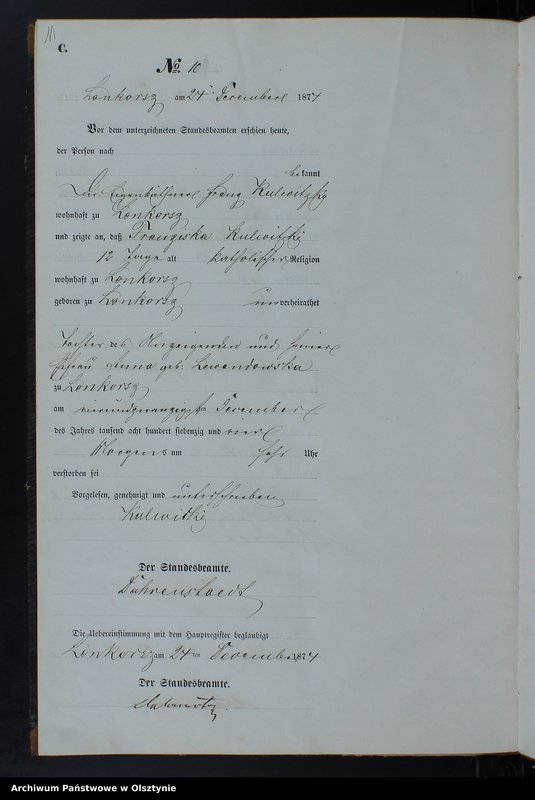 11
C.
No. 10
Lonkorsz am 24ten December 1874
Vor dem unterzeichneten Standesbeamten erschien heute,
der Person nach
bekannt
Der Eigenkäthner Franz Kulwitzki
wohnhaft zu Lonkorsz
und zeigte an, daß Franziska Kulwitzki
12 Tage alt katholischer Religion
wohnhaft zu Lonkorsz
geboren zu Lonkorsz unverheirathet
Tochter des Anzeigenden und seiner
Ehefrau Anna geb. Lewandowska
zu Lonkorsz
am vierundzwanzigsten December
des Jahres tausend acht hundert siebenzig und vier
Morgens um Uhr
verstorben sei
Vorgelesen, genehmigt und unterschrieben
Kulwitzki
Der Standesbeamte.
Die Uebereinstimmung mit dem Hauptregister beglaubigt
Lonkorsz am 24 ten December 1874
Der Standesbeamte.
Archiwum Państwowe w Olsztynie